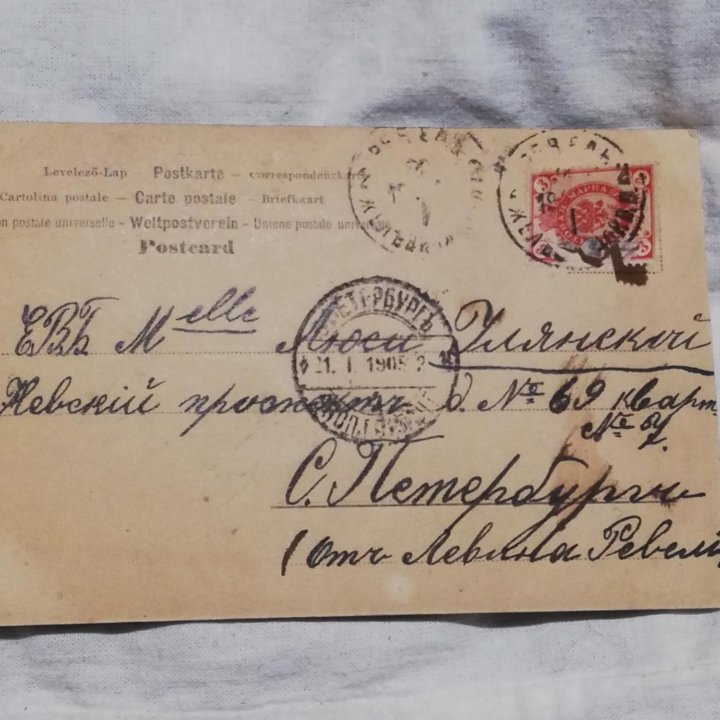 Levelező-Lap - Postkarte - Correspondenzkarte
Cartolina postale - Carte postale - Briefkaart
on postale universelle - Weltpostverein - Unione postale universale
Postcard
3 МАРКА 3
3 3
С.ПЕТЕРБУРГЪ
21. 1. 1905
ЕВБ Melle Люси Улянской
Невскій проспектъ д. № 69 кварт.
№ 7.
С. Петербургъ
(отъ Левяна Ревель